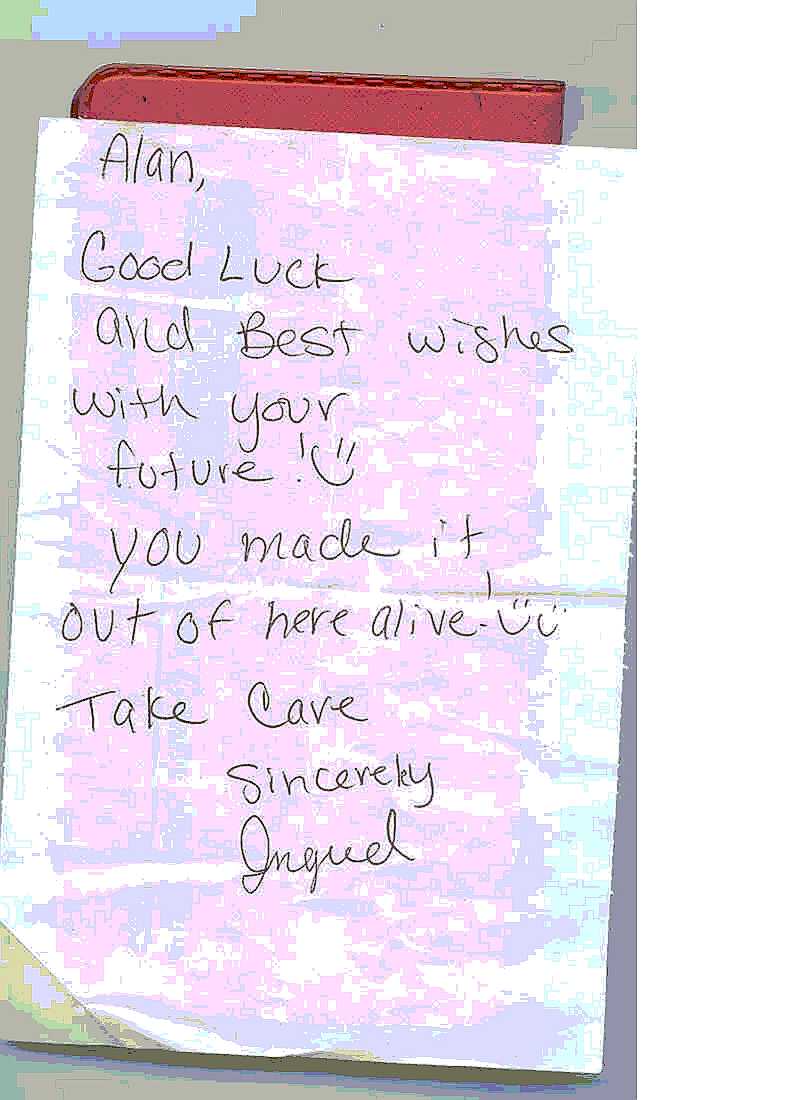 Alan,
Good Luck
and Best wishes
with your
future!
you made it
out of here alive!
Take Care
Sincerely
Ingrid